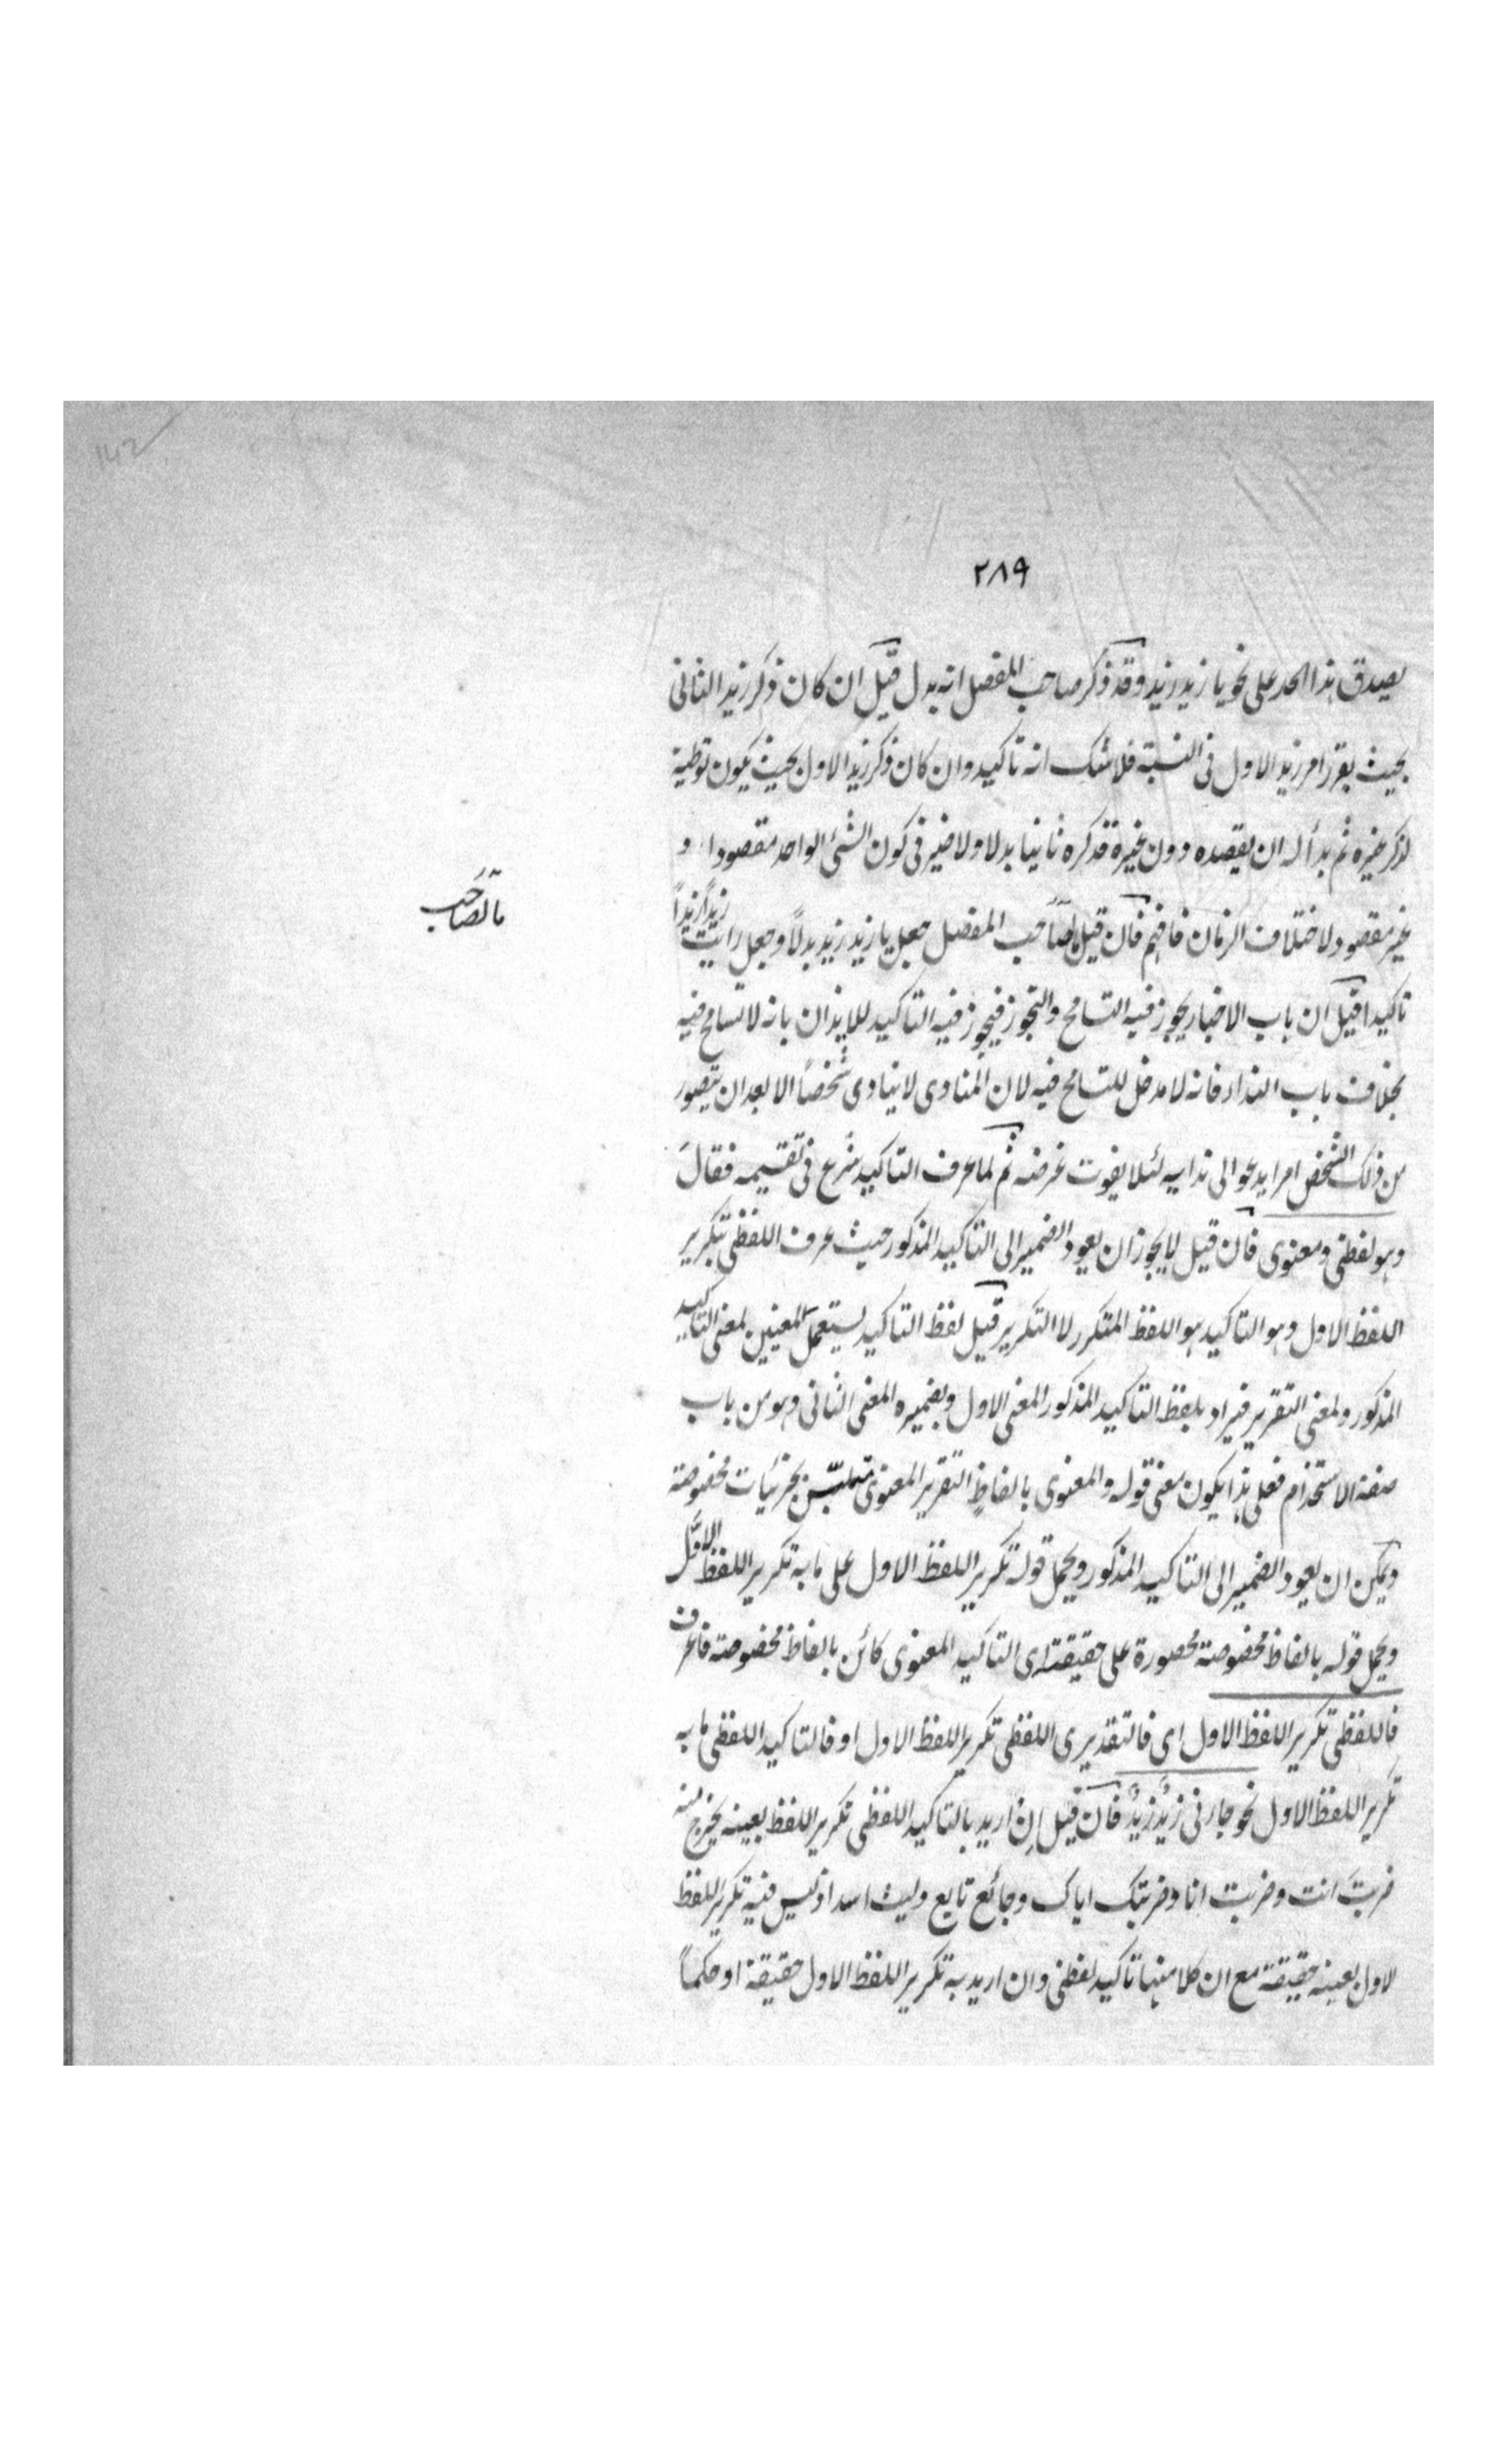 ١٤٢
٢٨٩
يصدق هذا الحد على نحو يا زيد زيد وقد ذكر صاحب المفصل انه بدل قيل ان كان ذكر زيد الثانى
بحيث يقرر امر زيد الاول فى النسبة فلا شك انه تاكيد وان كان ذكر زيد الاول بحيث يكون توطية
لذكر غيره ثم بدأ له ان يقصده دون غيره فذكره ثانيا بدلا ولا ضير فى كون الشئ الواحد مقصودا و
غير مقصود لاختلاف الزمان فافهم فان قيل ما لصاحب المفصل جعل يا زيد زيد بدلاً وجعل رايت زيداً زيداً
ما لصاحب
تاكيدا قيل ان باب الاخبار يجوز فيه التسامح والتجوز فيجوز فيه التاكيد للايذان بانه لا تسامح فيه
بخلاف باب النداء فانه لا مدخل للتسامح فيه لان المنادى لا ينادى شخصًا الا بعد ان يتصور
من ذلك الشخص امرا يدعو الى ندايه لئلا يفوت غرضه ثم لما عرف التاكيد شرع فى تقسيمه فقال
وهو لفظى ومعنوى فان قيل لا يجوز ان يعود الضمير الى التاكيد المذكور حيث عرف اللفظى بتكرير
اللفظ الاول وهو التاكيد هو اللفظ المتكرر لا التكرير قيل لفظ التاكيد يستعمل لمعنيين لمعنى التاكيد
المذكور ولمعنى التقرير فيراد بلفظ التاكيد المذكور المعنى الاول وبضميره المعنى الثانى وهو من باب
صنعة الاستخدام فعلى هذا يكون معنى قوله والمعنوى بالفاظ التقرير المعنوى متلبّس بجزئيات مخصوصة
ويمكن ان يعود الضمير الى التاكيد المذكور ويحمل قوله تكرير اللفظ الاول على ما به تكرير اللفظ الاوَّل
ويحمل قوله بالفاظ مخصوصة محصورة على حقيقته اى التاكيد المعنوى كائن بالفاظ مخصوصة فاعرف
فاللفظى تكرير اللفظ الاول اى فالتقديرى اللفظى تكرير اللفظ الاول او فالتاكيد اللفظى ما به
تكرير اللفظ الاول نحو جاءنى زيدٌ زيدٌ فان قيل ان اريد بالتاكيد اللفظى تكرير اللفظ بعينه يخرج منه
ضربتَ انت وضربت انا وضربتك اياك وجائع نايع وليث اسد اذ ليس فيه تكرير اللفظ
لاول بعينه حقيقة مع ان كلا منها تاكيد لفظى وان اريد به تكرير اللفظ الاول حقيقة او حكماً